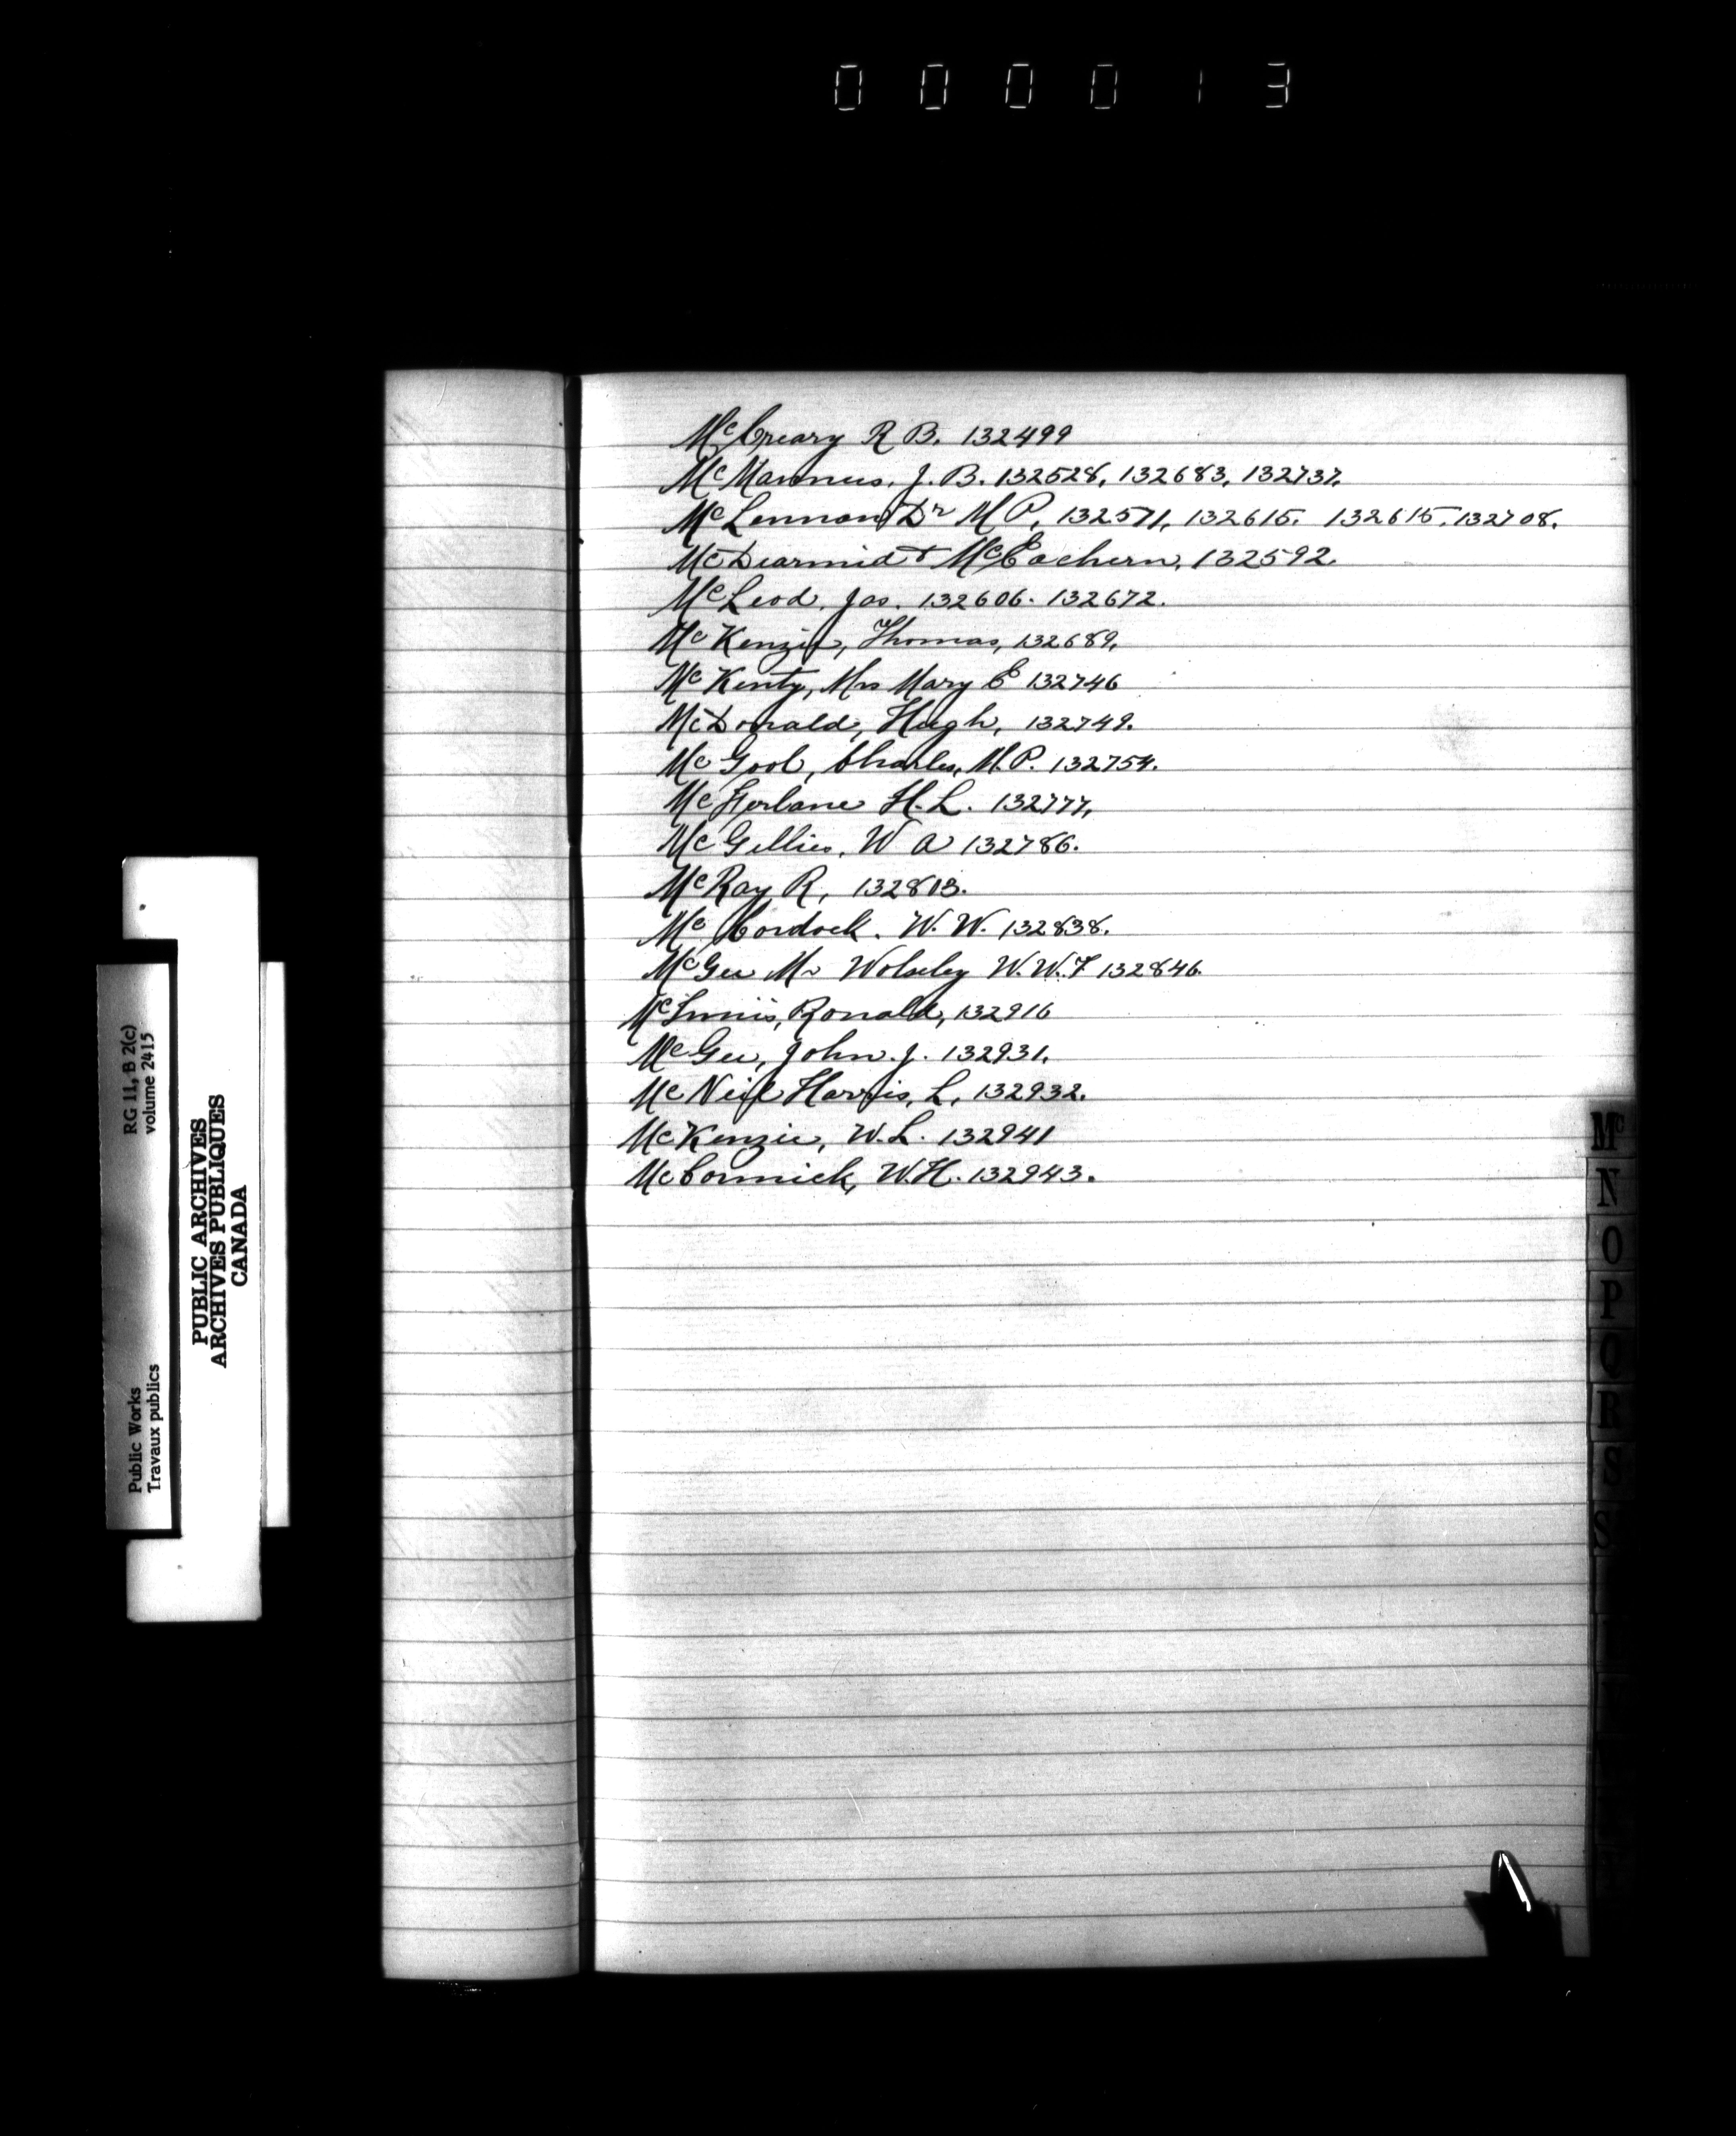 000013
McCreary R B. 132499
McMannus, J. B. 132528, 132683, 132737.
McLennan Dr M P, 132571, 132615. 132615, 132708.
McDiarmid & McEachern, 132592.
McLeod, Jas. 132606. 132672.
McKenzie, Thomas, 132689,
McKenty, Mrs Mary E 132746
McDonald, Hugh, 132749.
McGool, Charles, M.P. 132754.
McFarlane H. L. 132777,
McGillies, W A 132786.
McRay R, 132803.
McCordock. W. W. 132838.
McGee Mr Wolseley W. W. F 132846.
McInnis, Ronald, 132916
McGee, John. J. 132931,
McNeil Harris, L, 132932.
McKenzie, W. L. 132941
McCormick, W. H. 132943.
Mc
N
O
P
Q
R
S
RG 11, B 2(c)
volume 2415
Public Works
Travaux publics
PUBLIC ARCHIVES
ARCHIVES PUBLIQUES
CANADA